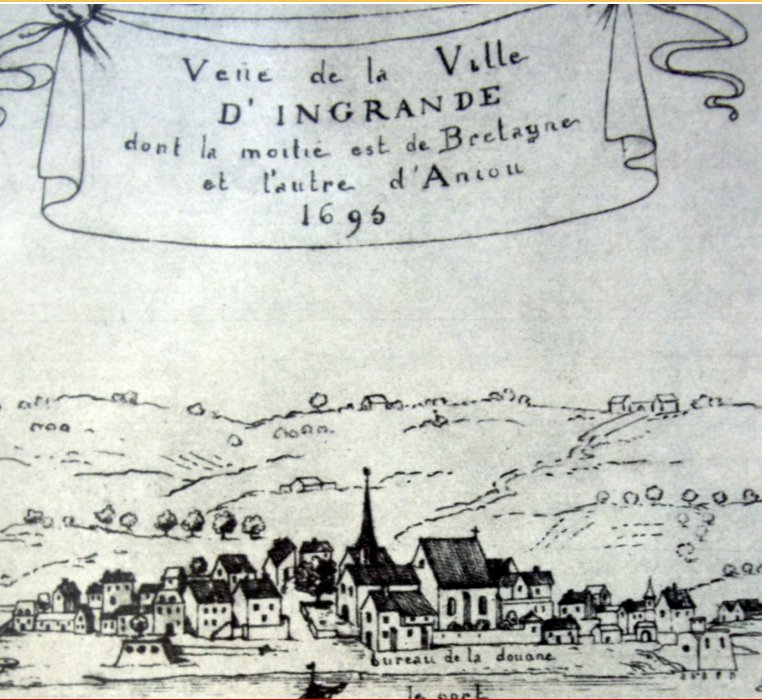 Veüe de la Ville
D' INGRANDE
dont la moitié est de Bretagne
et l'autre d'Aniou
1695
bureau de la douane
le port